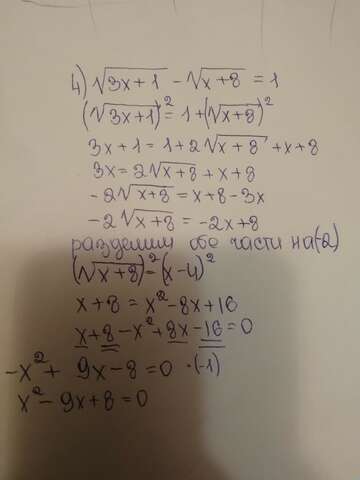 4) √3x+1 - √x+8 = 1
(√3x+1)² = 1+(√x+8)²
3x+1 = 1+2√x+8 +x+8
3x = 2√x+8 +x+8
-2√x+8 = x+8-3x
-2√x+8 = -2x+8
разделим обе части на(-2)
(√x+8)²=(x-4)²
x+8 = x²-8x+16
x+8-x²+8x-16=0
-x²+ 9x-8=0 ·(-1)
x²-9x+8=0